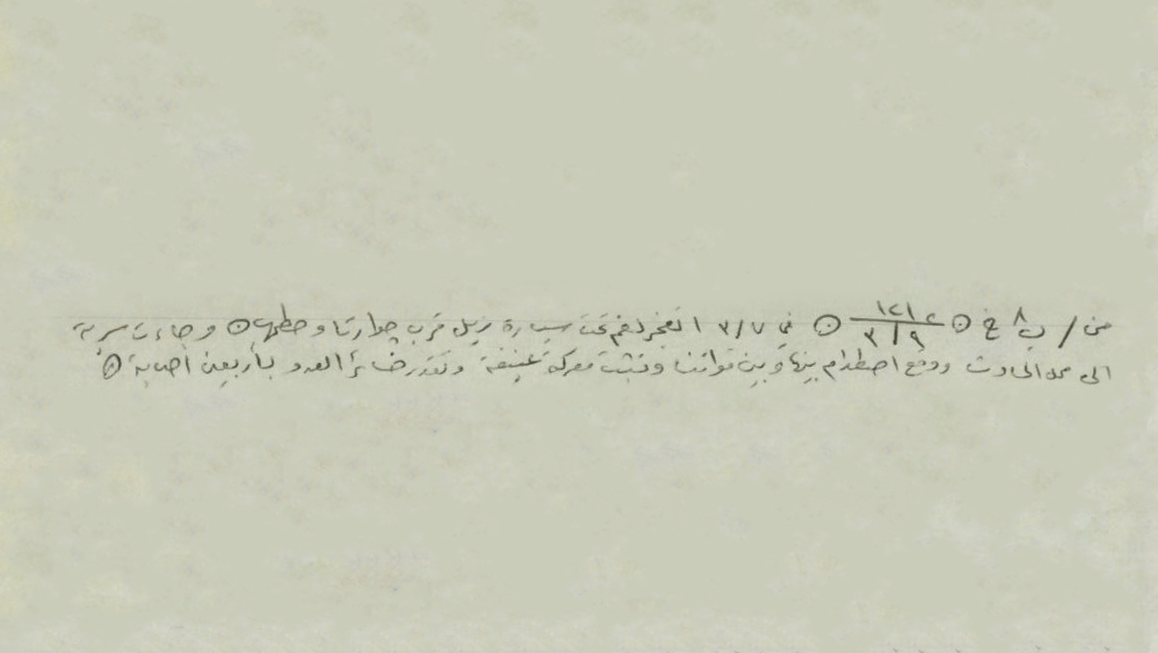 من / ب ٨ خ ⊙ ١٢١٢ ٣/٩ ⊙ في ٣/٧ انفجر لغم تحت سيارة زيل قرب چوارتا وحطمها ⊙ وجاءت سرية
الى محل الحادث ووقع اصطدام بينها وبين قواتنا ونشبت معركة عنيفة وتقدر خسائر العدو باربعين اصابة ⊙